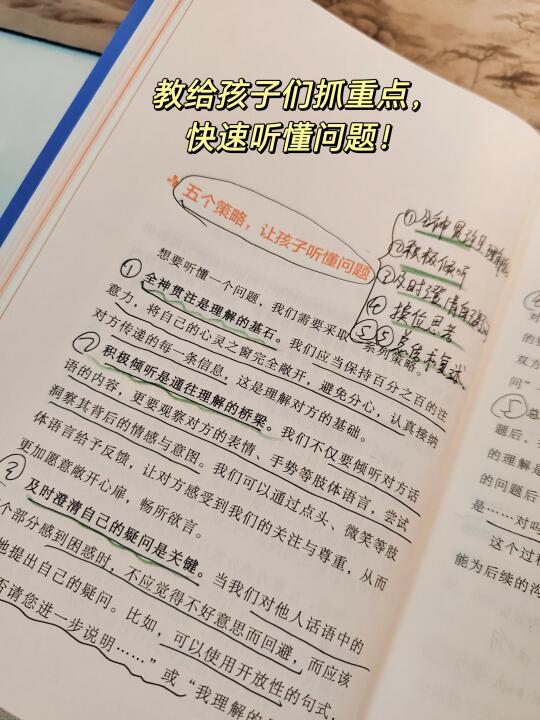 教给孩子们抓重点，
快速听懂问题！
五个策略，让孩子听懂问题
① 全神贯注是理解
② 积极倾听
③ 及时澄清自己
④ 换位思考
⑤ 总结
想要听懂一个问题，我们需要采取一系列策略。
① 全神贯注是理解的基石。我们应当保持百分之百的注
意力，将自己的心灵之窗完全敞开，避免分心，认真接纳
对方传递的每一条信息，这是理解对方的基础。
② 积极倾听是通往理解的桥梁。我们不仅要倾听对方话
语的内容，更要观察对方的表情、手势等肢体语言，尝试
洞察其背后的情感与意图。我们可以通过点头、微笑等肢
体语言给予反馈，让对方感受到我们的关注与尊重，从而
更加愿意敞开心扉，畅所欲言。
③ 及时澄清自己的疑问是关键。当我们对他人话语中的
个部分感到困惑时，不应觉得不好意思而回避，而应该
地提出自己的疑问。比如，可以使用开放性的句式，
否请您进一步说明……”或“我理解的
对
的
双方
问”
⑤ 总
题后，
的理解是
的问题后
是……对吗
这个过程
能为后续的沟